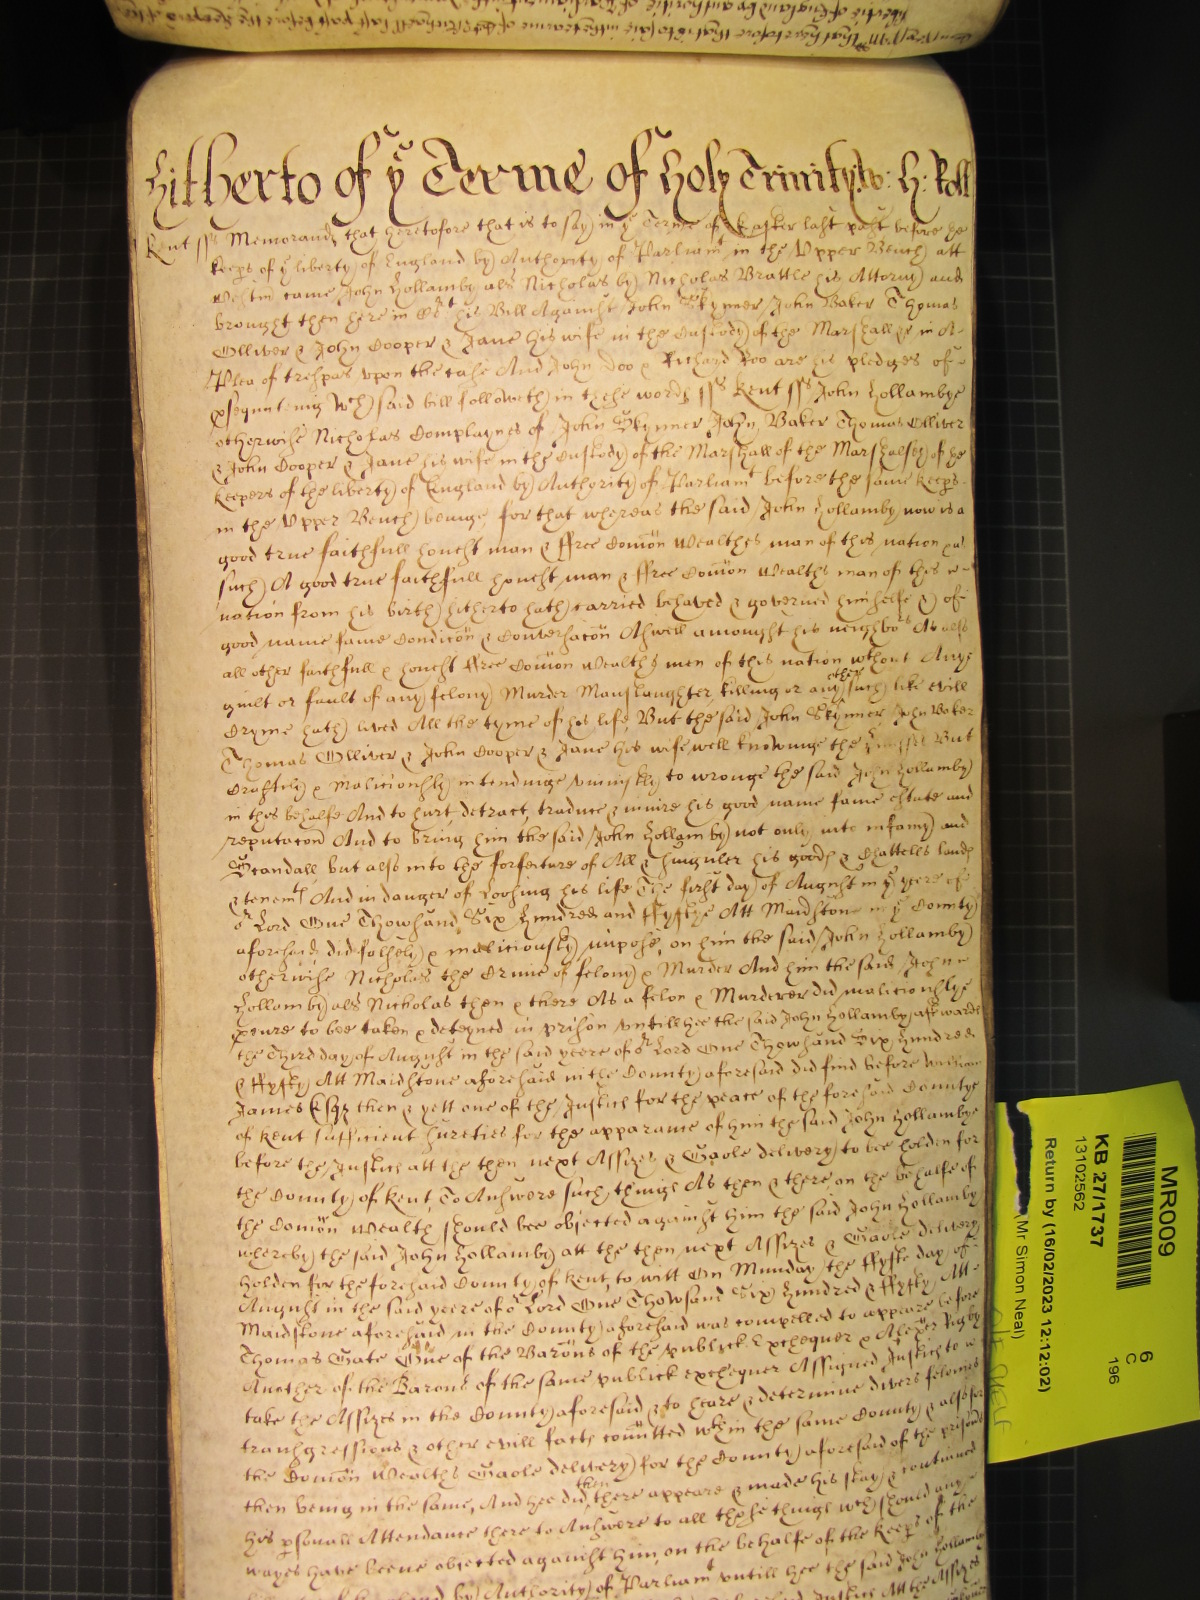 Hitherto of ye Terme of Holy Trinity: H: Roll
Kent ss Memorand that heretofore that is to say in ye Terme of Easter last past before the
keeps of ye liberty of England by Authority of Parliamt in the Upper Bench att
Westm came John Hollamby als Nicholas by Nicholas Brattle his Attorny and
brought then here in Crt his Bill Against John Skynner John Baker Thomas
Olliver & John Cooper & Jane his wife in the Custody of the Marshall &c in A
Plea of trespas upon the case And John Doo & Richard Roo are his pledges of
psequuteing wch said bill followeth in these words ss Kent ss John Hollambye
otherwise Nicholas Complaynes of John Skynner John Baker Thomas Olliver
& John Cooper & Jane his wife in the Custody of the Marshall of the Marshalsey of the
keepers of the liberty of England by Authority of Parliamt before the same keeps
in the Upper Bench beinge for that whereas the said John Hollamby now is a
good true faithfull honest man & ffree Comon Wealthes man of this nation &
such A good true faithfull honest man & ffree Comon Wealths man of this
nation from his birth hitherto hath carried behaved & governed himselfe & of
good name fame Condicon & Conversacon Aswell amongst his neighbors As also
all other faithfull & honest ffree Comon Wealths men of this nation wthout Any
guilt or fault of any felony Murder Manslaughter killing or any other such like evill
Cryme hath lived All the tyme of his life But the said John Skynner John Baker
Thomas Olliver & John Cooper & Jane his wife well knowinge the But
Craftily & Maliciously intendinge uniustly to wronge the said John Hollamby
in this behalfe And to hurt detract traduce & iniure his good name fame estate and
reputacon And to bring him the said John Hollamby not only into infamy and
Scandall but also into the forfeiture of All & singuler his goods & Chattells lands
& tenemts And in danger of loosing his life The first day of August in ye yeere of
or Lord One Thowsand Six Hundred and ffyftye Att Maidstone in ye County
aforesaid did falsely & maliciously impose on him the said John Hollamby
otherwise Nicholas the Crime of felony & Murder And him the said John
Hollamby als Nicholas then & there As a felon & Murderer did maliciouslye
pcure to bee taken & deteyned in prison untill hee the said John Hollamby afterwards
the Third day of August in the said yeere of or Lord One Thowsand Six Hundred
& ffyfty Att Maidstone aforesaid in the County aforesaid did find before William
James Esqr then & yett one of the Justices for the peace of the foresaid Countye
of Kent sufficient sureties for the apparance of him the said John Hollambye
before the Justices att the then next Assizes & Gaole delivery to bee holden for
the County of Kent To Answere such things As then & there on the behalfe of
the Comon Wealth should bee obiected against him the said John Hollamby
whereby the said John Hollamby att the then next Assizes & Gaole delivery
holden for the foresaid County of Kent to witt On Munday the ffyfte day of
August in the said yeere of or Lord One Thowsand Six Hundred & ffyfty Att
Maidstone aforesaid in the County aforesaid was compelled to appeare before
Thomas Gate One of the Barons of the publick Exchequer & Alexer Rigby
Another of the Barons of the same publick exchequer Assigned Justices to
take the Assizes in the County aforesaid & to heare & determine divers felonies
transgressions & other evill facts comitted wthin the same County & also for
the Comon Wealths Gaole delivery for the County aforesaid of the prisoners
then being in the same And hee did then there appeare & made his stay & continued
his psonall Attendance there to Answere to all those things wch should any
wayes have beene obiected against him on the behalfe of the keeps of the
by Authority of Parliamt untill hee the said John Hollamby
Justices Att the Assizes
MR009
6
C
196
KB 27/1737
13102562
Return by (16/02/2023 12:12:02)
Mr Simon Neal)